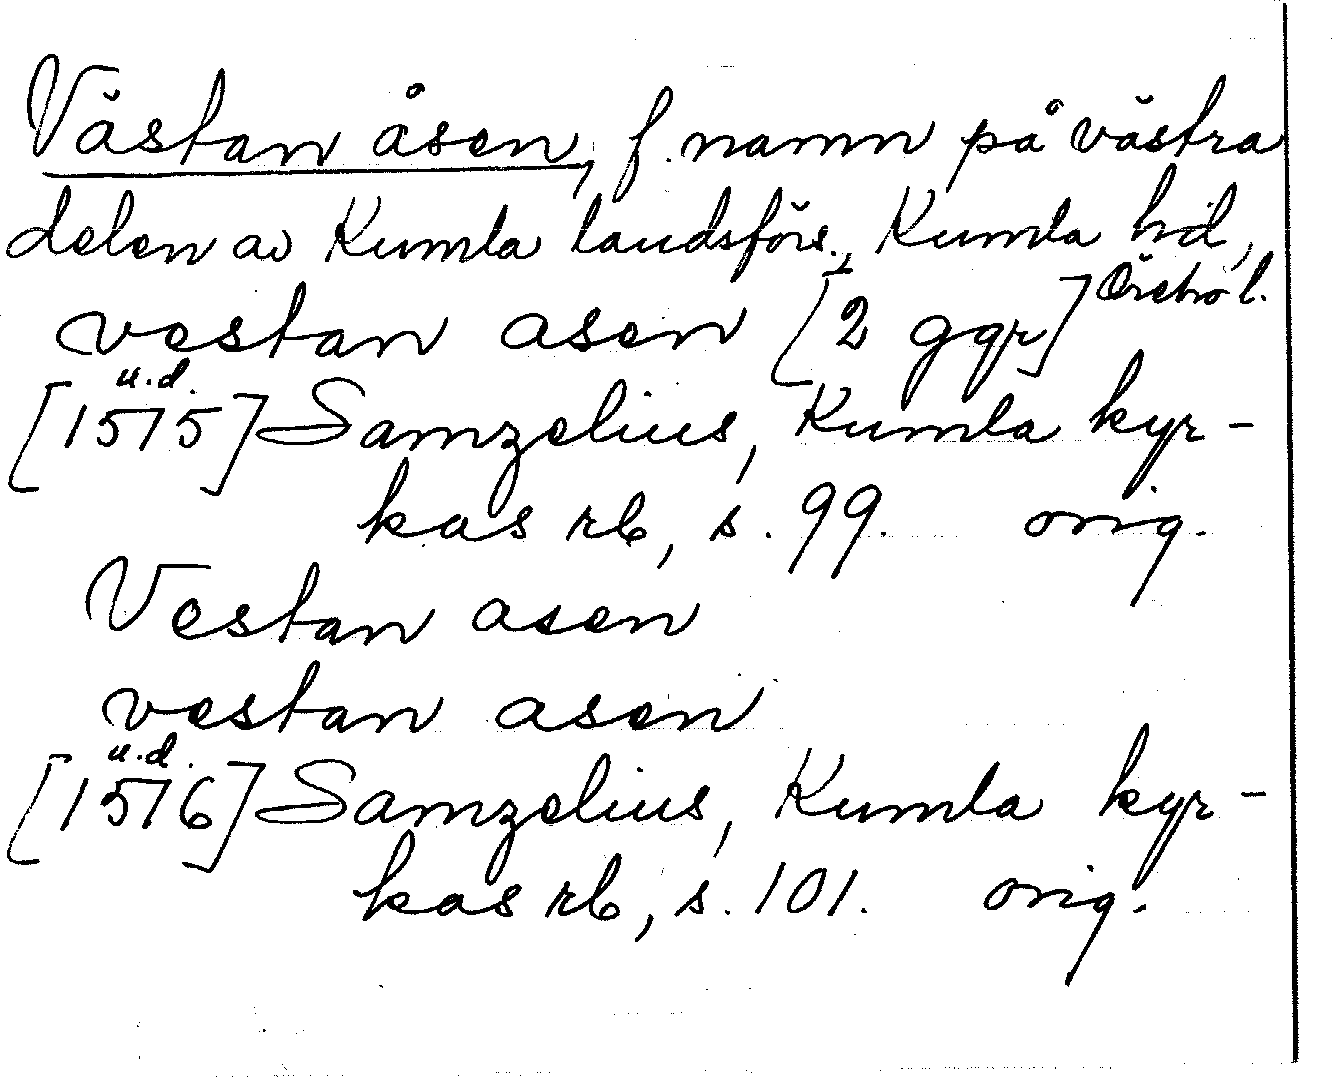 Västan åsen, f. namn på västra
delen av Kumla landsförs., Kumla hd,
Örebro l.
vestan asen [2 ggr]
u.d.
[1575] Samzelius, Kumla kyr-
kas rb, s. 99. orig.
Vestan asen
vestan asen
u.d.
[1576] Samzelius, Kumla kyr-
kas rb, s. 101. orig.